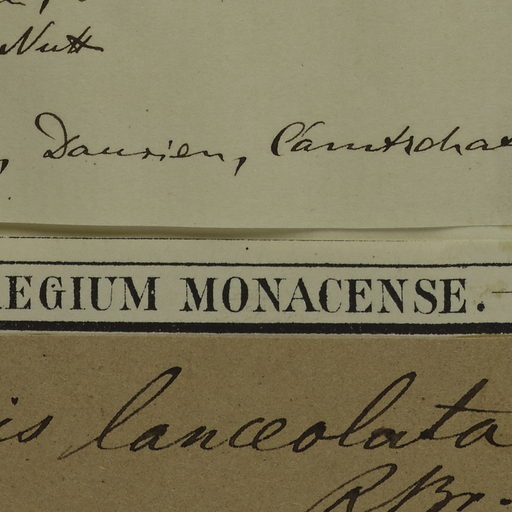 Nutt
, Daurien, Camtscha
REGIUM MONACENSE.
is lanceolata
R Br.